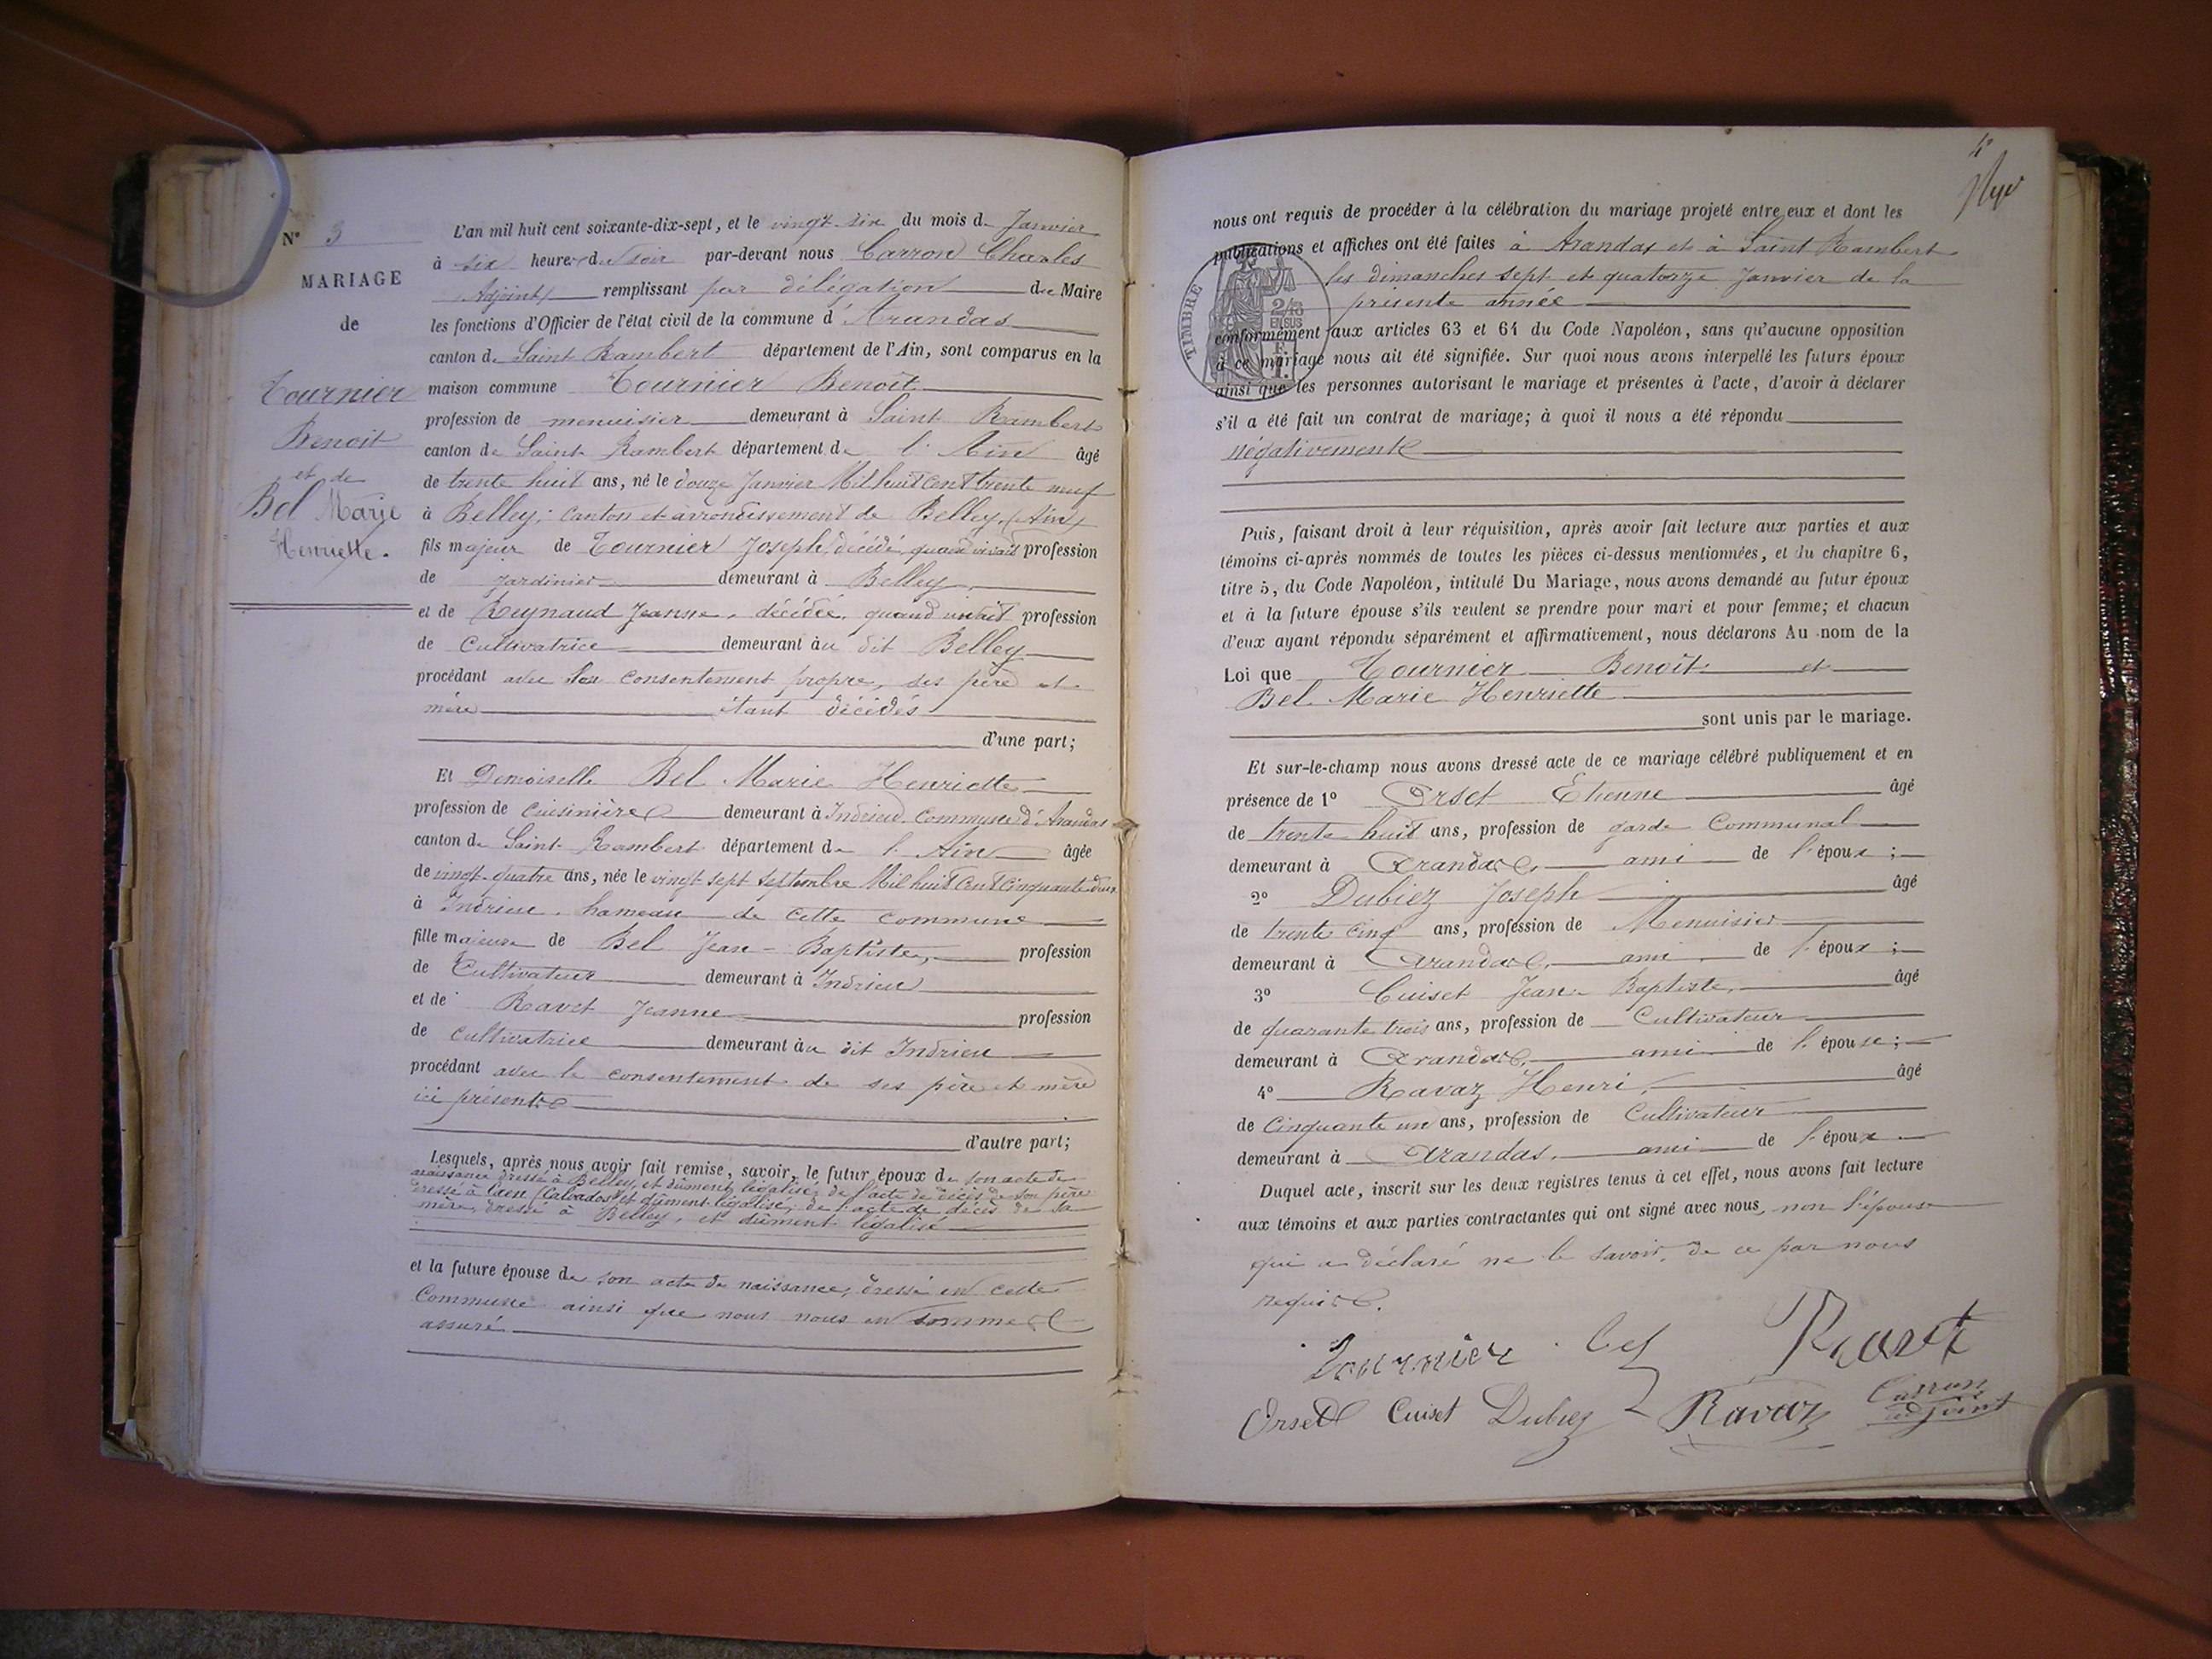 N° 3
MARIAGE
de
Tournier
Benoit
et de
Bel Marie
Henriette.
L'an mil huit cent soixante-dix-sept, et le vingt-six du mois d. Janvier
à six heures du soir par-devant nous Carron Charles
Adjoint remplissant par délégation du Maire
les fonctions d'Officier de l'état civil de la commune d'Arandas
canton de Saint Rambert département de l'Ain, sont comparus en la
maison commune Tournier Benoît
profession de menuisier demeurant à Saint Rambert
canton de Saint Rambert département de l'Ain âgé
de trente huit ans, né le douze Janvier Mil huit cent trente neuf
à Belley; Canton et arrondissement de Belley, (Ain)
fils majeur de Tournier Joseph décédé, quand vivait profession
de jardinier demeurant à Belley,
et de Reynaud Jeanne, décédée, quand vivait profession
de Cultivatrice demeurant au dit Belley
procédant avec son consentement propre, ses père et
mère étant décédés
d'une part;
Et Demoiselle Bel Marie Henriette
profession de cuisinière demeurant à Indrieu Commune d'Arandas
canton de Saint-Rambert département de l'Ain âgée
de vingt-quatre ans, née le vingt sept septembre Mil huit cent cinquante deux
à Indrieu, hameau de cette commune
fille majeure de Bel Jean-Baptiste, profession
de Cultivateur demeurant à Indrieu
et de Ravet Jeanne profession
de cultivatrice demeurant au dit Indrieu
procédant avec le consentement de ses père et mère
ici présents
d'autre part;
Lesquels, après nous avoir fait remise, savoir, le futur époux de son acte de
naissance dressé à Belley, et dûment légalisé, de l'acte de décès de son père
dressé à Caen (Calvados) et dûment légalisé, de l'acte de décès de sa
mère, dressé à Belley, et dûment légalisé
et la future épouse de son acte de naissance, dressé en cette
Commune ainsi que nous nous en sommes
assuré
4e
nous ont requis de procéder à la célébration du mariage projeté entre eux et dont les
publications et affiches ont été faites à Arandas et à Saint Rambert
les dimanches sept et quatorze Janvier de la
présente année
TIMBRE
2/10
EN SUS
conformément aux articles 63 et 64 du Code Napoléon, sans qu'aucune opposition
à ce mariage nous ait été signifiée. Sur quoi nous avons interpellé les futurs époux
ainsi que les personnes autorisant le mariage et présentes à l'acte, d'avoir à déclarer
s'il a été fait un contrat de mariage; à quoi il nous a été répondu
négativement
Puis, faisant droit à leur réquisition, après avoir fait lecture aux parties et aux
témoins ci-après nommés de toutes les pièces ci-dessus mentionnées, et du chapitre 6,
titre 5, du Code Napoléon, intitulé Du Mariage, nous avons demandé au futur époux
et à la future épouse s'ils veulent se prendre pour mari et pour femme; et chacun
d'eux ayant répondu séparément et affirmativement, nous déclarons Au nom de la
Loi que Tournier Benoît et
Bel Marie Henriette
sont unis par le mariage.
Et sur-le-champ nous avons dressé acte de ce mariage célébré publiquement et en
présence de 1° Orset Etienne âgé
de trente huit ans, profession de garde Communal
demeurant à Arandas, ami de l'époux;
2° Dubiez Joseph âgé
de trente cinq ans, profession de Menuisier
demeurant à Arandas, ami de l'époux;
3° Cuiset Jean-Baptiste, âgé
de quarante trois ans, profession de Cultivateur
demeurant à Arandas, ami de l'épouse;
4° Ravaz Henri, âgé
de Cinquante un ans, profession de Cultivateur
demeurant à Arandas, ami de l'époux
Duquel acte, inscrit sur les deux registres tenus à cet effet, nous avons fait lecture
aux témoins et aux parties contractantes qui ont signé avec nous, non l'épouse
qui a déclaré ne le savoir, de ce par nous
requise.
Tournier Bel Ravet
Orset Cuiset Dubiez Ravaz Carron
adjoint